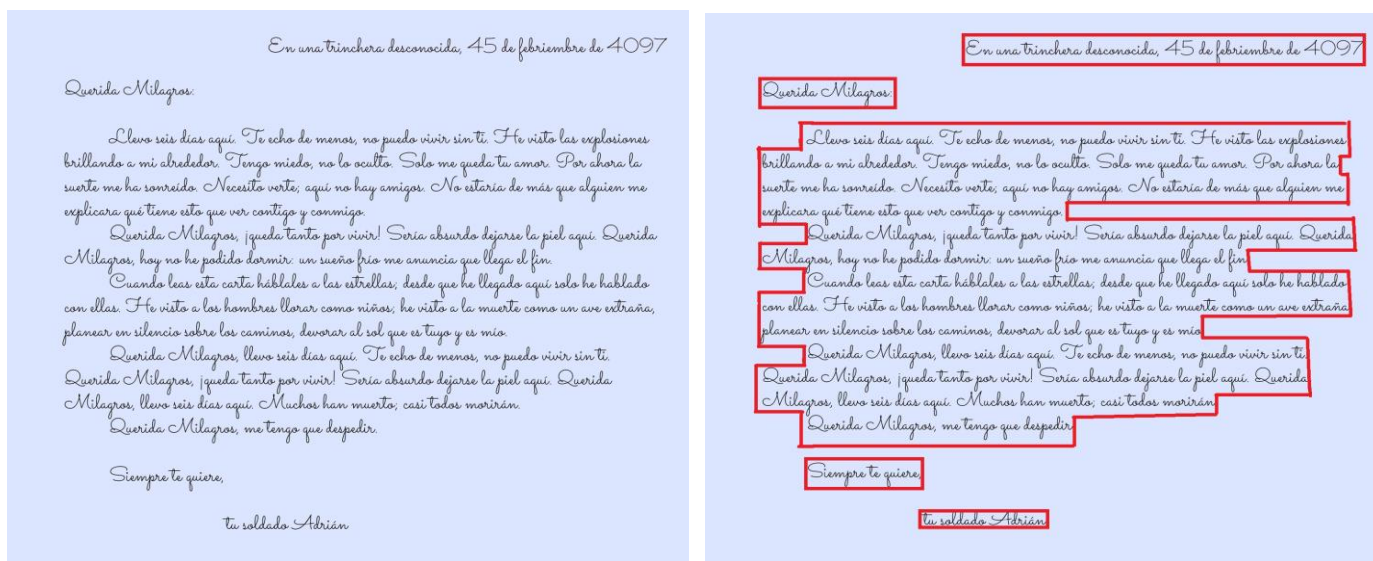 En una trinchera desconocida, 45 de febriembre de 4097
Querida Milagros:
Llevo seis días aquí. Te echo de menos, no puedo vivir sin ti. He visto las explosiones
brillando a mi alrededor. Tengo miedo, no lo oculto. Solo me queda tu amor. Por ahora la
suerte me ha sonreído. Necesito verte; aquí no hay amigos. No estaría de más que alguien me
explicara qué tiene esto que ver contigo y conmigo.
Querida Milagros, ¡queda tanto por vivir! Sería absurdo dejarse la piel aquí. Querida
Milagros, hoy no he podido dormir: un sueño frío me anuncia que llega el fin.
Cuando leas esta carta háblales a las estrellas; desde que he llegado aquí solo he hablado
con ellas. He visto a los hombres llorar como niños; he visto a la muerte como un ave extraña,
planear en silencio sobre los caminos, devorar al sol que es tuyo y es mío.
Querida Milagros, llevo seis días aquí. Te echo de menos, no puedo vivir sin ti.
Querida Milagros, ¡queda tanto por vivir! Sería absurdo dejarse la piel aquí. Querida
Milagros, llevo seis días aquí. Muchos han muerto; casi todos morirán.
Querida Milagros, me tengo que despedir.
Siempre te quiere,
tu soldado Adrián
En una trinchera desconocida, 45 de febriembre de 4097
Querida Milagros:
Llevo seis días aquí. Te echo de menos, no puedo vivir sin ti. He visto las explosiones
brillando a mi alrededor. Tengo miedo, no lo oculto. Solo me queda tu amor. Por ahora la
suerte me ha sonreído. Necesito verte; aquí no hay amigos. No estaría de más que alguien me
explicara qué tiene esto que ver contigo y conmigo.
Querida Milagros, ¡queda tanto por vivir! Sería absurdo dejarse la piel aquí. Querida
Milagros, hoy no he podido dormir: un sueño frío me anuncia que llega el fin.
Cuando leas esta carta háblales a las estrellas; desde que he llegado aquí solo he hablado
con ellas. He visto a los hombres llorar como niños; he visto a la muerte como un ave extraña,
planear en silencio sobre los caminos, devorar al sol que es tuyo y es mío.
Querida Milagros, llevo seis días aquí. Te echo de menos, no puedo vivir sin ti.
Querida Milagros, ¡queda tanto por vivir! Sería absurdo dejarse la piel aquí. Querida
Milagros, llevo seis días aquí. Muchos han muerto; casi todos morirán.
Querida Milagros, me tengo que despedir.
Siempre te quiere,
tu soldado Adrián